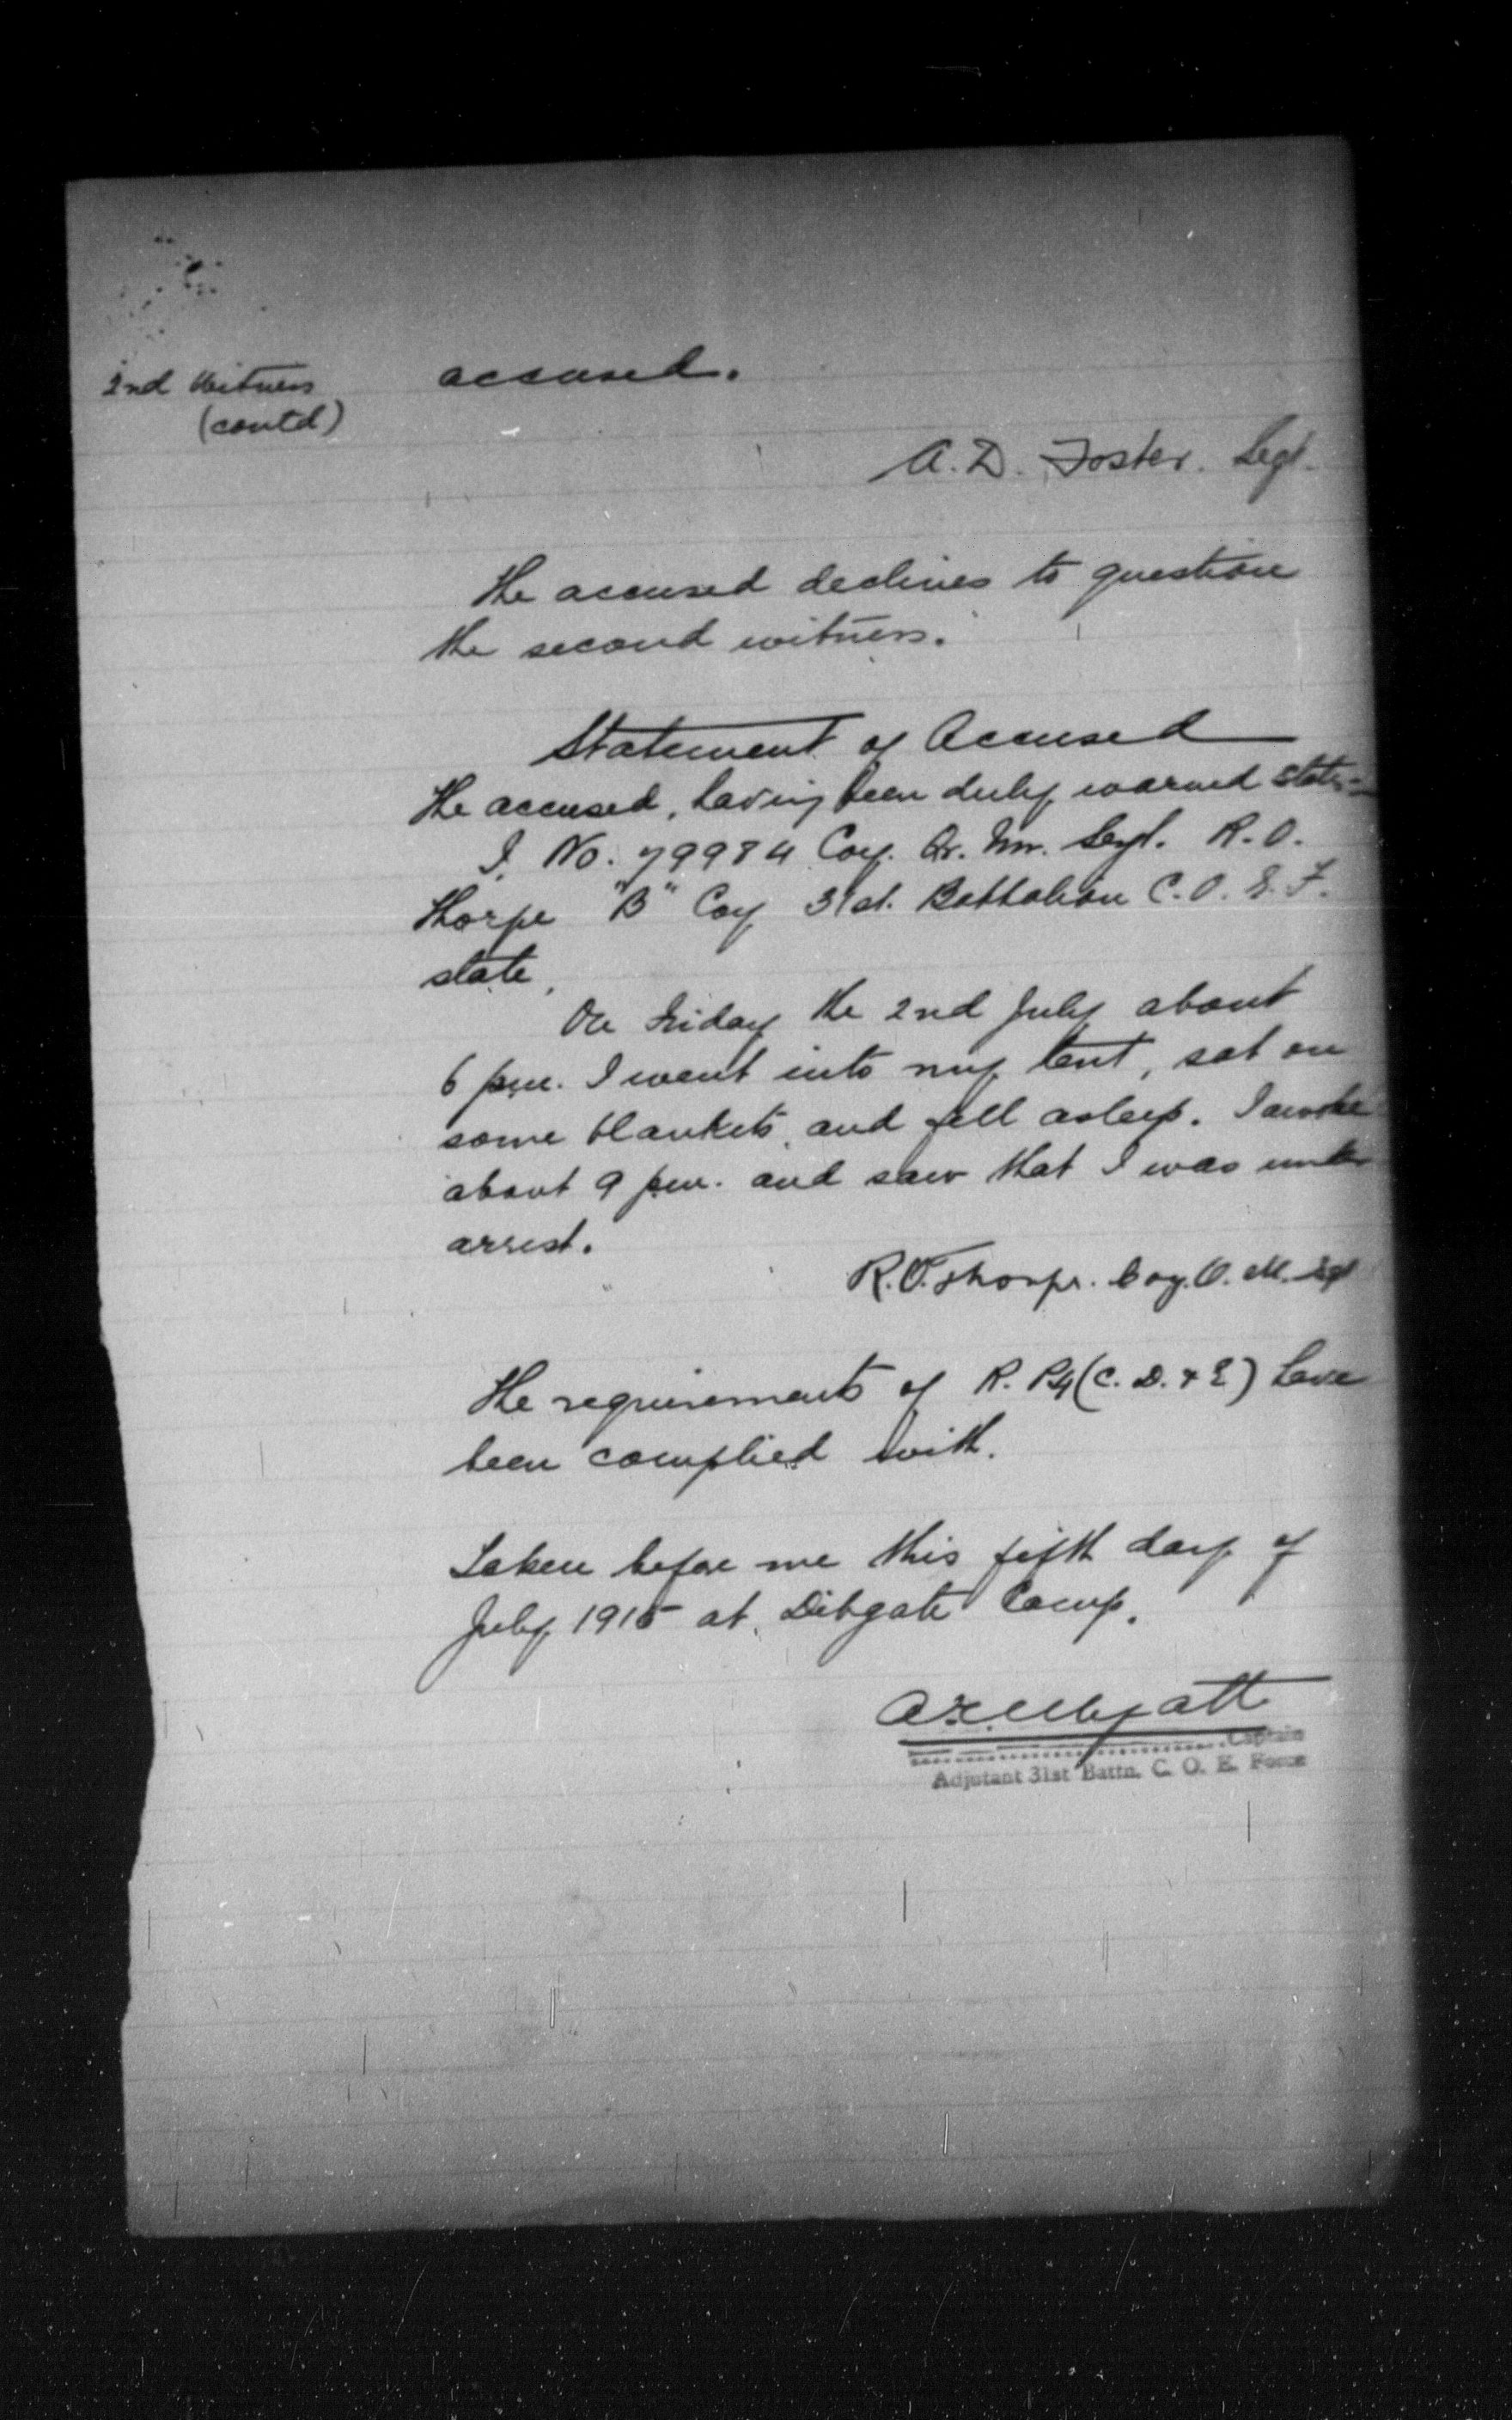 2nd Witness
(contd)
accused.
A. D. Foster. Segt.
The accused declines to question
the second witness.
Statement of Accused
The accused, having been duly warned states -
I, No. 79984 Coy. Qr. Mr. Sergt. R. O.
Thorpe "B" Coy 31st. Battalion C. O. E. F.
state,
On Friday the 2nd July about
6 pm. I went into my tent, sat on
some blankets, and fell asleep. I awoke
about 9 pm. and saw that I was under
arrest.
R. O. Thorpe. Coy. Q. M. Sgt
The requirements of R. P. 4 (C. D. & E) have
been complied with.
Taken before me this fifth day of
July 1915 at Dibgate Camp.
Captain
Adjutant 31st Battn. C. O. E. Force